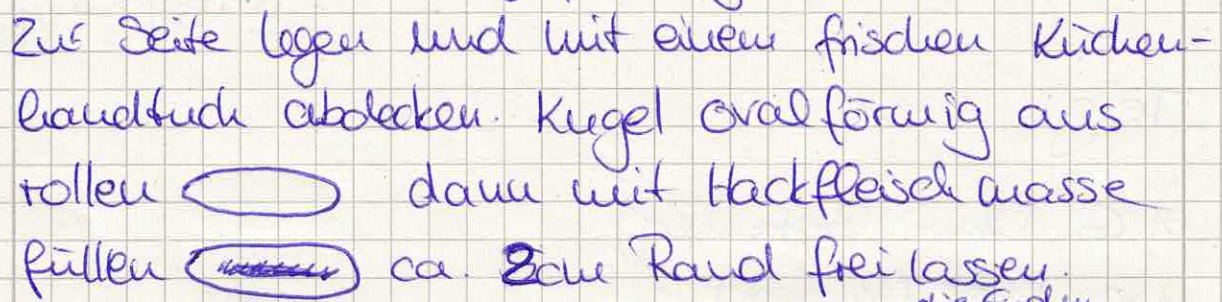 Zur Seite legen und mit einem frischen Küchen-
handtuch abdecken. Kugel ovalförmig aus
rollen dann mit Hackfleischmasse
füllen ca. 2cm Rand frei lassen.